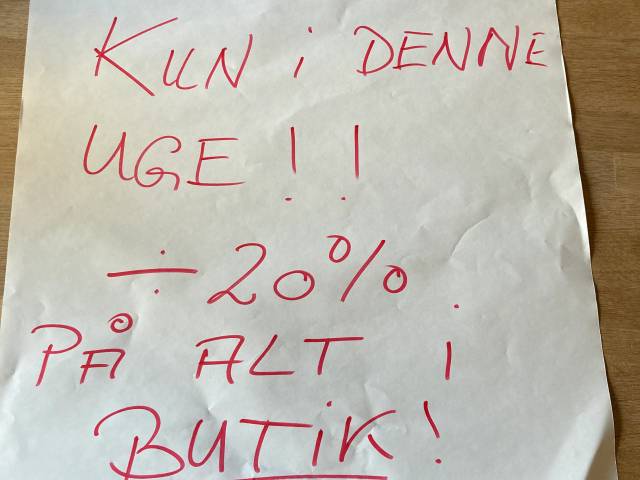 KUN i DENNE
UGE!!
÷20%
PÅ ALT i
BUTiK!